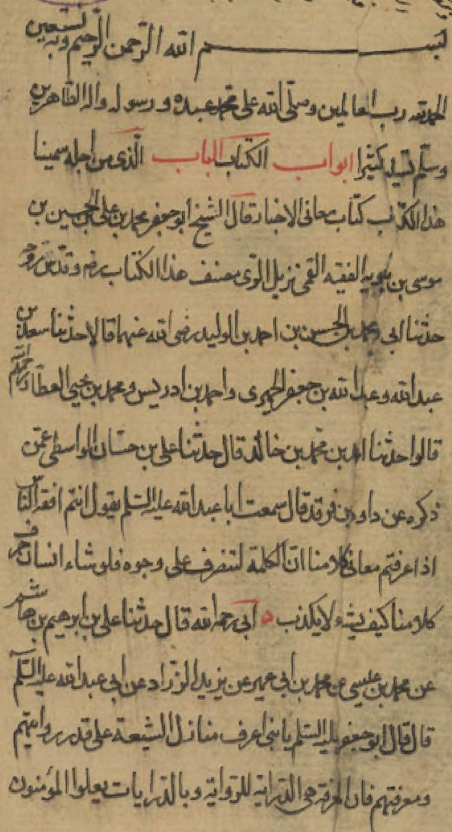 بسم الله الرحمن الرحيم وبه نستعين
الحمد لله رب العالمين وصلى الله على محمد عبده ورسوله واله الطاهرين
وسلم تسليما كثيرا ابواب الكتاب الباب الذى من اجله سمينا
هذا الكتاب كتاب معانى الاخبار قال الشيخ ابو جعفر محمد بن على بن الحسين بن
موسى بن بابويه الفقيه القمى نزيل الرى مصنف هذا الكتاب رضه وقدس روحه
حدثنا ابى ومحمد بن الحسن بن احمد بن الوليد رضى الله عنهما قالا حدثنا سعد بن
عبد الله وعبد الله بن جعفر الحميرى واحمد بن ادريس ومحمد بن يحيى العطار رحمهم الله
قالوا حدثنا احمد بن محمد بن خالد قال حدثنا على بن حسان الواسطى عمن
ذكره عن داود بن فرقد قال سمعت ابا عبد الله عليه السلم يقول انتم افقه الناس
اذا عرفتم معانى كلامنا ان الكلمة لتنصرف على وجوه فلو شاء انسان لصرف
كلامه كيف يشاء ولا يكذب ه ابى رحمه الله قال حدثنا على بن ابرهيم بن هاشم
عن محمد بن عيسى عن محمد بن ابى عمير عن بريد الرزاز عن ابى عبد الله عليه السلم
قال قال ابو جعفر عليه السلم يا بنى اعرف منازل الشيعة على قدر روايتهم
ومعرفتهم فان المعرفة هى الدراية للرواية وبالدرايات يعلوا المؤمنون